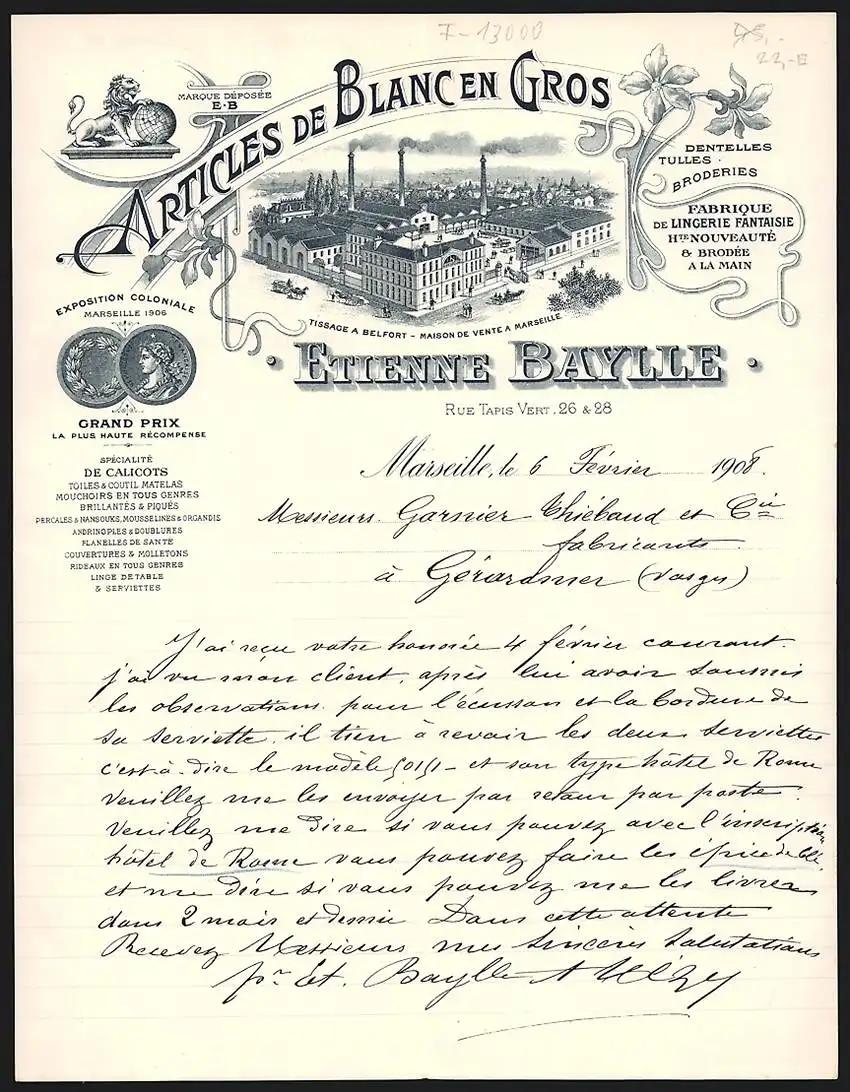 F-13000
22,-E
MARQUE DÉPOSÉE
E·B
ARTICLES DE BLANC EN GROS
DENTELLES
TULLES
BRODERIES
FABRIQUE
DE LINGERIE FANTAISIE
HTE NOUVEAUTÉ
& BRODÉE
A LA MAIN
EXPOSITION COLONIALE
MARSEILLE 1906
GRAND PRIX
LA PLUS HAUTE RÉCOMPENSE
SPÉCIALITÉ
DE CALICOTS
TOILES & COUTIL MATELAS
MOUCHOIRS EN TOUS GENRES
BRILLANTÉS & PIQUÉS
PERCALES & NANSOUKS, MOUSSELINES & ORGANDIS
ANDRINOPLES & DOUBLURES
FLANELLES DE SANTÉ
COUVERTURES & MOLLETONS
RIDEAUX EN TOUS GENRES
LINGE DE TABLE
& SERVIETTES
TISSAGE A BELFORT - MAISON DE VENTE A MARSEILLE
· ETIENNE BAYLLE ·
RUE TAPIS VERT. 26 & 28
Marseille, le 6 Février 1908.
Messieurs Garnier Thiébaud et Cie
fabricants
à Gérardmer (Vosges)
J'ai reçu votre honorée 4 février courant.
j'ai vu mon client, après lui avoir soumis
les observations pour l'écusson et la bordure de
sa serviette. il tien à revoir les deux serviettes
c'est-à-dire le modèle 5015 - et son type hôtel de Rome
Veuillez me les envoyer par retour par poste.
Veuillez me dire si vous pouvez avec l'inscription
hôtel de Rome vous pouvez faire les épis de blé,
et me dire si vous pouvez me les livrer
dans 2 mois et demie Dans cette attente
Recevez Messieurs mes sincères salutations
pr Et. Baylle